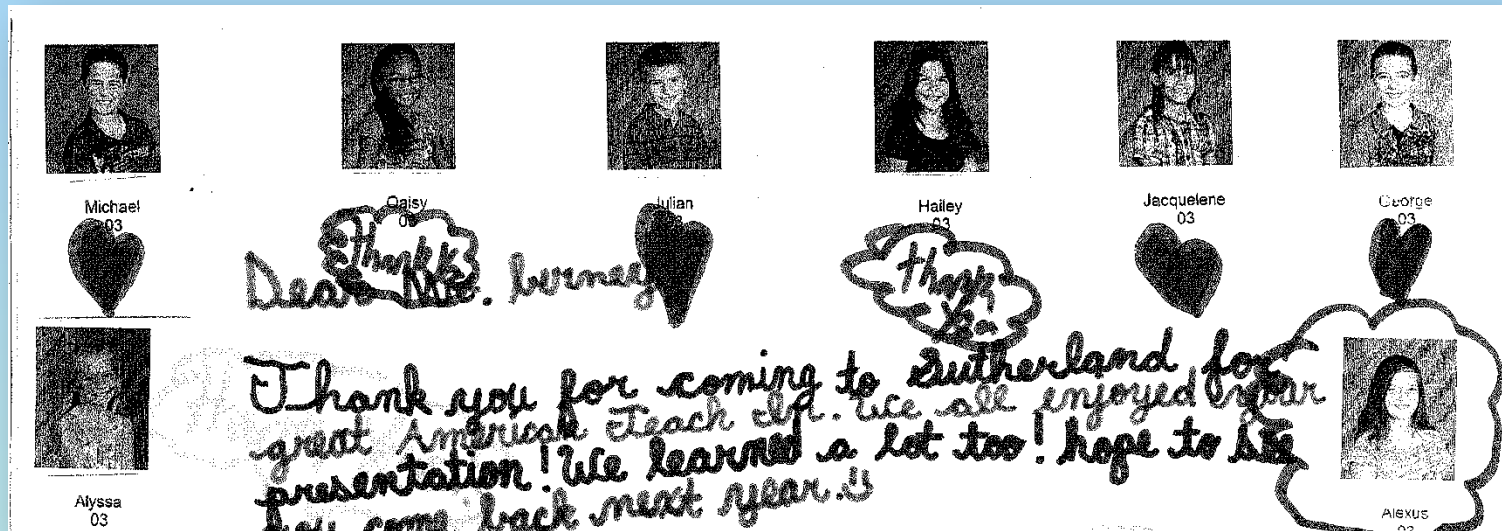 Michael Daisy Julian Hailey Jacquelene George
03 03 03 03 03 03
Thank
thank
You
Dear Mr. berney
Thank you for coming to Sutherland for
great American Teach In. We all enjoyed your
presentation! We learned a lot too! hope to see
you come back next year.
Alyssa
03
Alexus
03